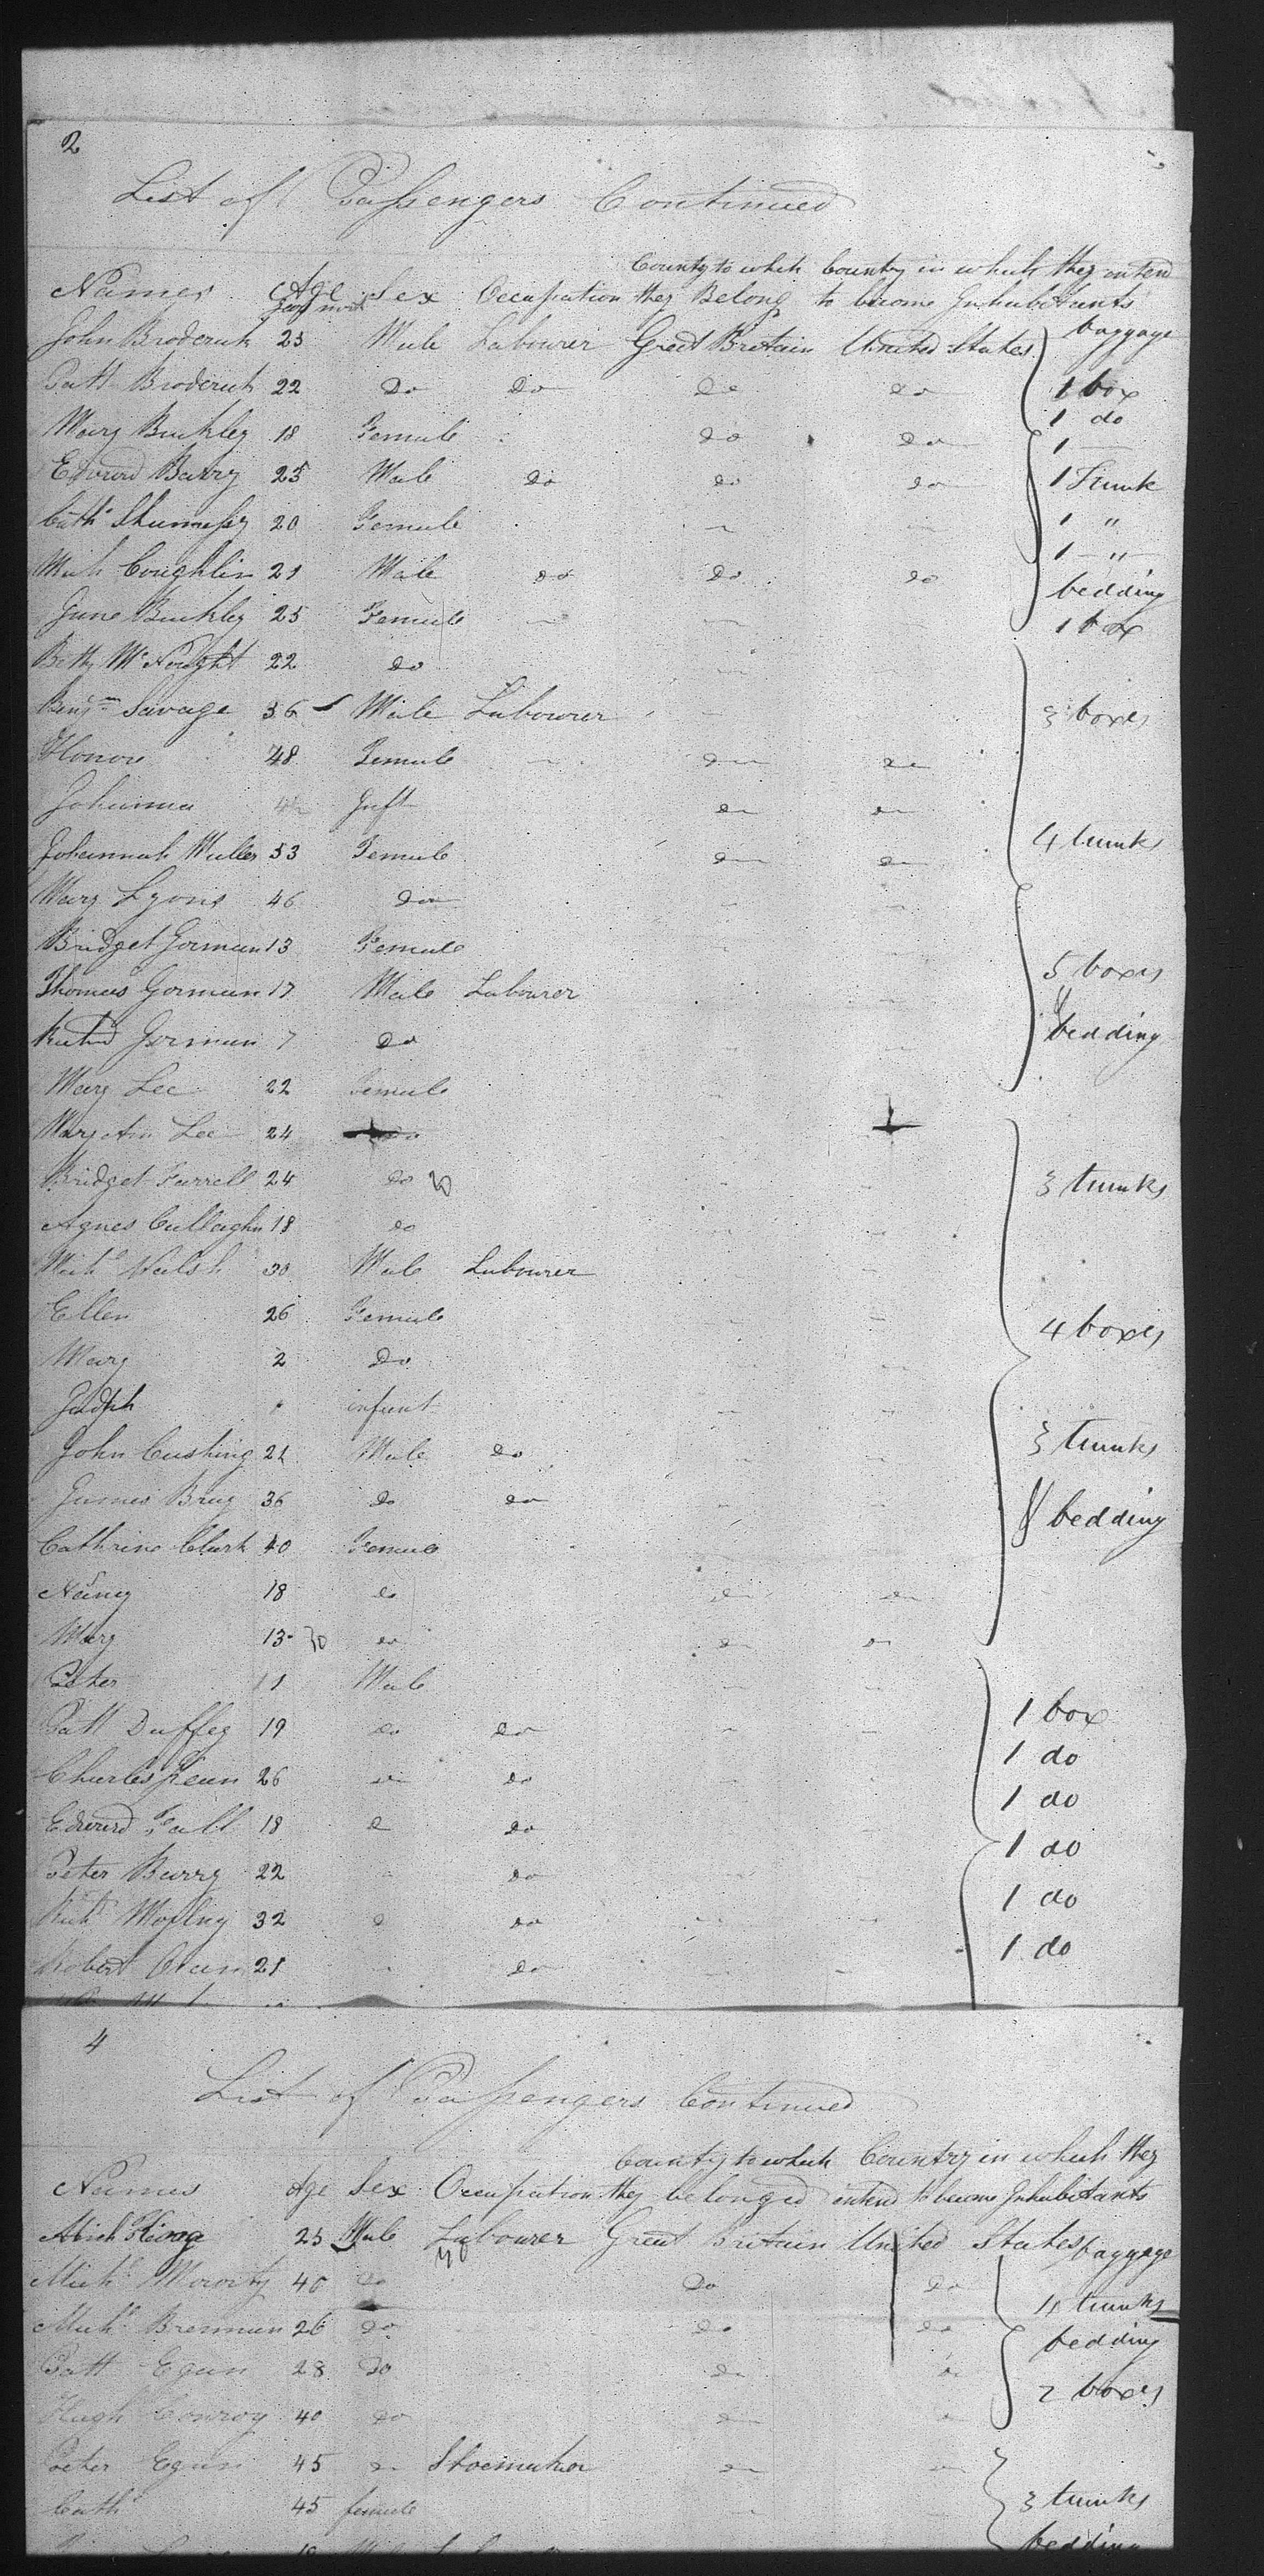 2
List of Passengers Continued
County to which Country in which they intend
Names Age Sex Occupation they Belong to become Inhabitants
John Broderick 25 Male Labourer Great Britain United States baggage
Patt Broderick 22 Do Do Do do 1 box
1 do
Mary Buckley 18 Female do do 1
Edward Barry 25 Male do do do 1 Trunk
Cath Shunnessy 20 Female 1 "
1 "
Mich Coughlin 21 Male do do do bedding
June Buckley 25 Female 1 box
Betty McNought 22 do
Benjm Savage 36 Male Labourer 3 boxes
Honor 48 Female do do
Johanna do do
Johannah Muller 53 Female do do 4 trunks
Mary Lyons 46 do
Bridget Gorman 13 Female
Thomas Gorman 17 Male Labourer 5 boxes
Richd Gorman 7 do bedding
Mary Lee 22 Female
Mary Ann Lee 24 do
Bridget Farrell 24 do 20 3 trunks
Agnes Cullaghn 18 do
Michl Walsh 30 Male Labourer
Ellen 26 Female 4 boxes
Mary 2 do
Judith infant
John Cushing 21 Male do 3 trunks
James Bray 36 do do bedding
Cathrine Clark 40 Female
Nancy 18 do do do
Mary 13 30 do do do
Peter 11 Male
Patt Duffey 19 do do 1 box
1 do
Charles 26 do do 1 do
Edward Fall 18 do 1 do
Peter Barry 22 do 1 do
Richd 32 do
Robert 21 do 1 do
4
List of Passengers Continued
County to which Country in which they
Names Age Sex Occupation they belonged intend to become Inhabitants
25 Male Labourer Great Britain United States baggage
40
Michl 40 do Do do 4 trunks
Michl Brennan 26 do do do bedding
Patt Egan 28 do do do 2 boxes
Hugh Conroy 40 do do do
Peter Egan 45 do Shoemaker do do
Cath 45 female 3 trunks
bedding